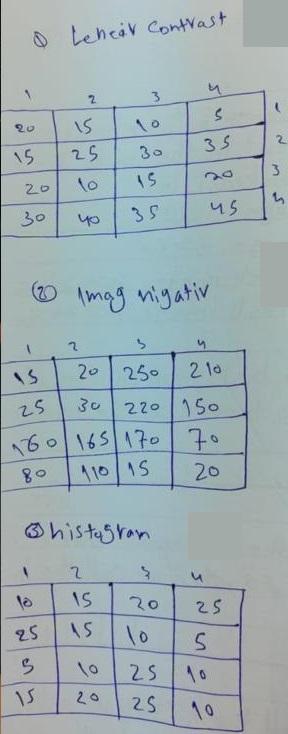 ① Lenear Contrast
1 2 3 4
20 15 10 5 1
15 25 30 35 2
20 10 15 20 3
30 40 35 45 4
② Imag nigativ
1 2 3 4
15 20 250 210
25 30 220 150
160 165 170 70
80 110 15 20
③ histogram
1 2 3 4
10 15 20 25
25 15 10 5
5 10 25 10
15 20 25 10